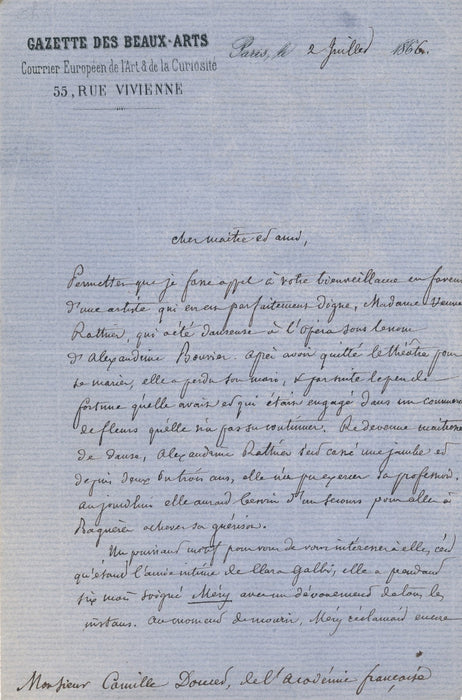 GAZETTE DES BEAUX-ARTS
Courrier Européen de l'Art & de la Curiosité
55, RUE VIVIENNE
Paris, le 2 Juillet 1866.
cher maître et ami,
Permettez que je fasse appel à votre bienveillance en faveur
d'une artiste qui en est parfaitement digne, Madame Veuve
Rathier, qui a été danseuse à l'opéra sous le nom
d'Alexandrine Bouvier. après avoir quitté le théâtre pour
se marier, elle a perdu son mari, & par suite le peu de
fortune qu'elle avait et qui était engagé dans un commerce
de fleurs qu'elle n'a pas su continuer. Redevenue maîtresse
de danse, Alexandrine Rathier s'est cassé une jambe et
depuis deux ou trois ans, elle n'a pu exercer sa profession.
aujourd'hui elle aurait besoin d'un secours pour aller à
Bagnères achever sa guérison.
Un puissant motif pour vous de vous intéresser à elle, c'est
qu'étant l'amie intime de Clara Galby, elle a pendant
six mois soigné Méry avec un dévouement de tous les
instans. Au moment de mourir, Méry réclamait encore
Monsieur Camille Doucet, de l'Académie française